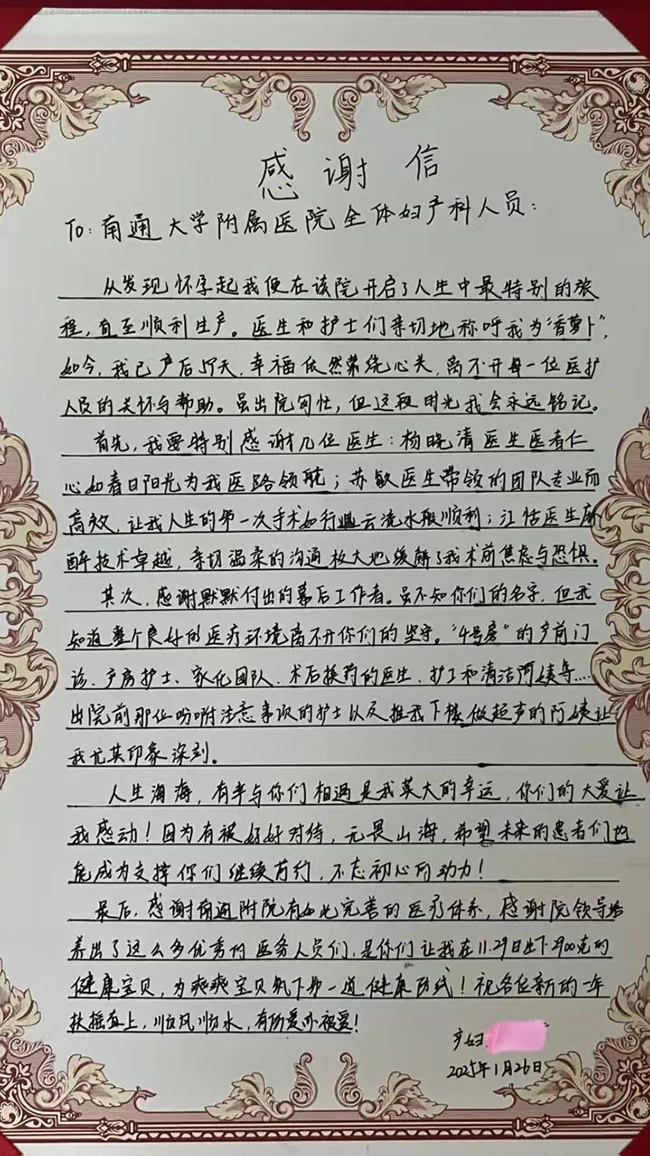 感谢信
To: 南通大学附属医院全体妇产科人员:
从发现怀孕起我便在该院开启了人生中最特别的旅
程,直至顺利生产。医生和护士们亲切地称呼我为“香萝卜”,
如今,我已产后57天,幸福依然萦绕心头,离不开每一位医护
人员的关怀与帮助。虽出院匆忙,但这段时光我会永远铭记。
首先,我要特别感谢几位医生:杨晓清医生医者仁
心如春日阳光为我医路领航;苏敏医生带领的团队专业而
高效,让我人生的第一次手术如行云流水般顺利;江恬医生麻
醉技术卓越,亲切温柔的沟通极大地缓解了我术前焦虑与恐惧。
其次,感谢默默付出的幕后工作者。虽不知你们的名字,但我
知道整个良好的医疗环境离不开你们的坚守。“4号房”的产前门
诊、产房护士、家化团队、术后换药的医生、护工和清洁阿姨等...
出院前那位吩咐注意事项的护士以及推我下楼做超声的阿姨让
我尤其印象深刻。
人生海海,有幸与你们相遇是我莫大的幸运,你们的大爱让
我感动!因为有被好好对待,无畏山海,希望未来的患者们也
能成为支撑你们继续前行,不忘初心的动力!
最后,感谢南通附院有如此完善的医疗体系,感谢院领导培
养出了这么多优秀的医务人员们,是你们让我在11.29日生下2900克的
健康宝贝,为爽爽宝贝筑下第一道健康防线!祝各位新的一年
扶摇直上,顺风顺水,有所爱亦被爱!
产妇:
2025年1月26日